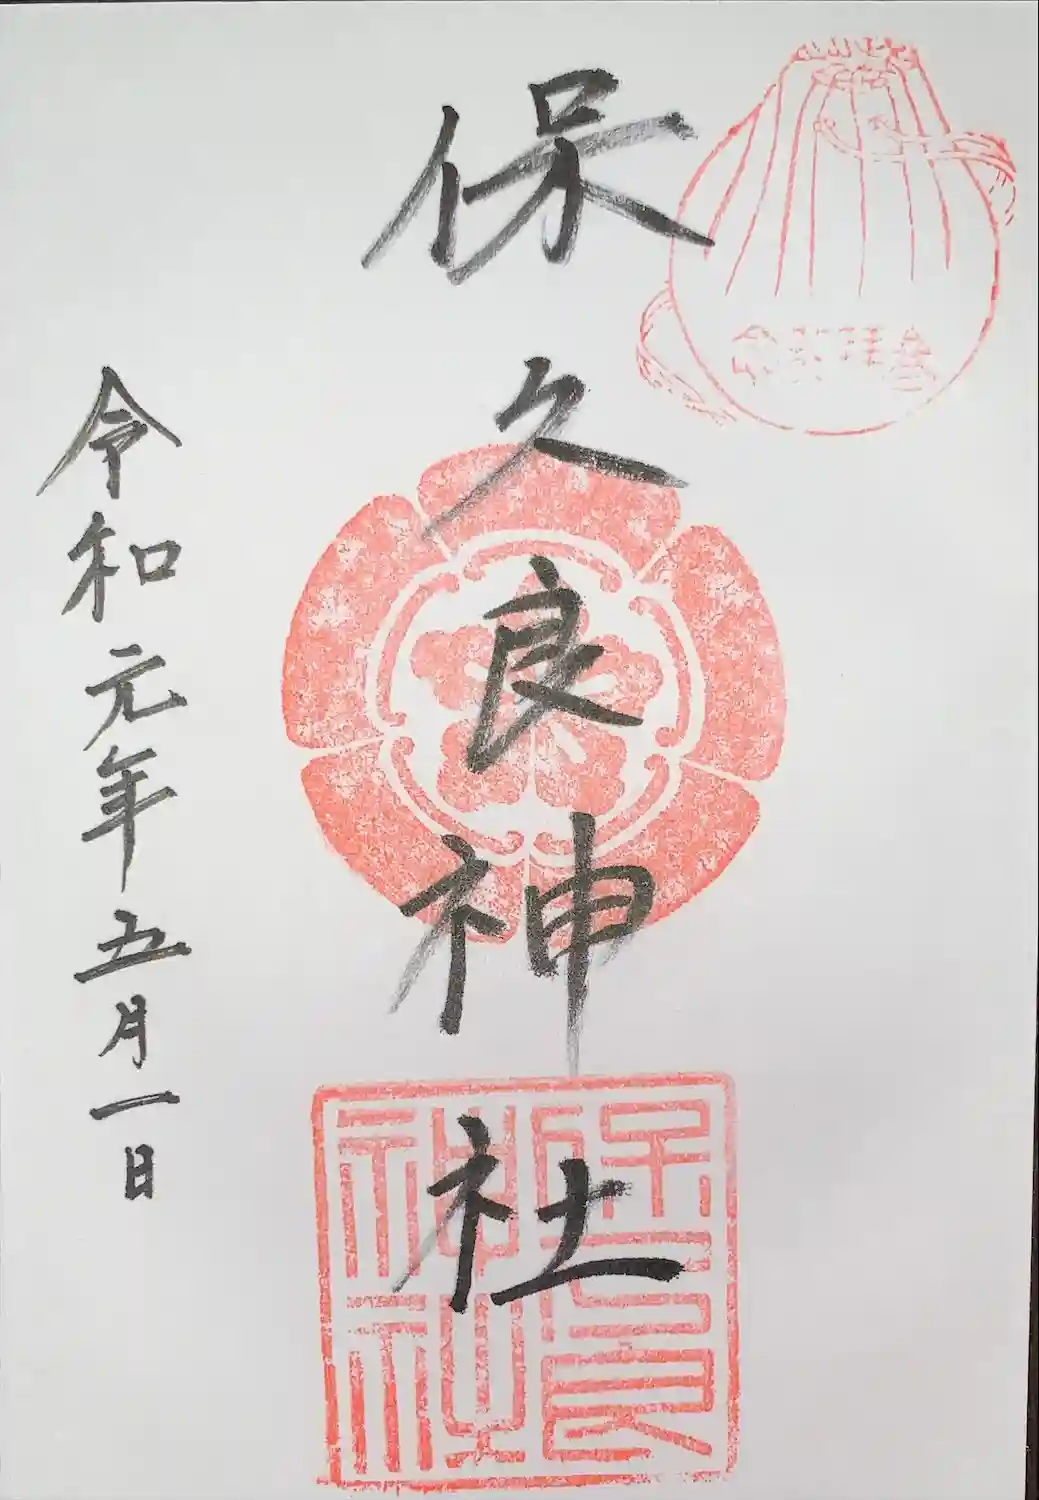 参拝記念
保久良神社
保久良神社
令和元年五月一日